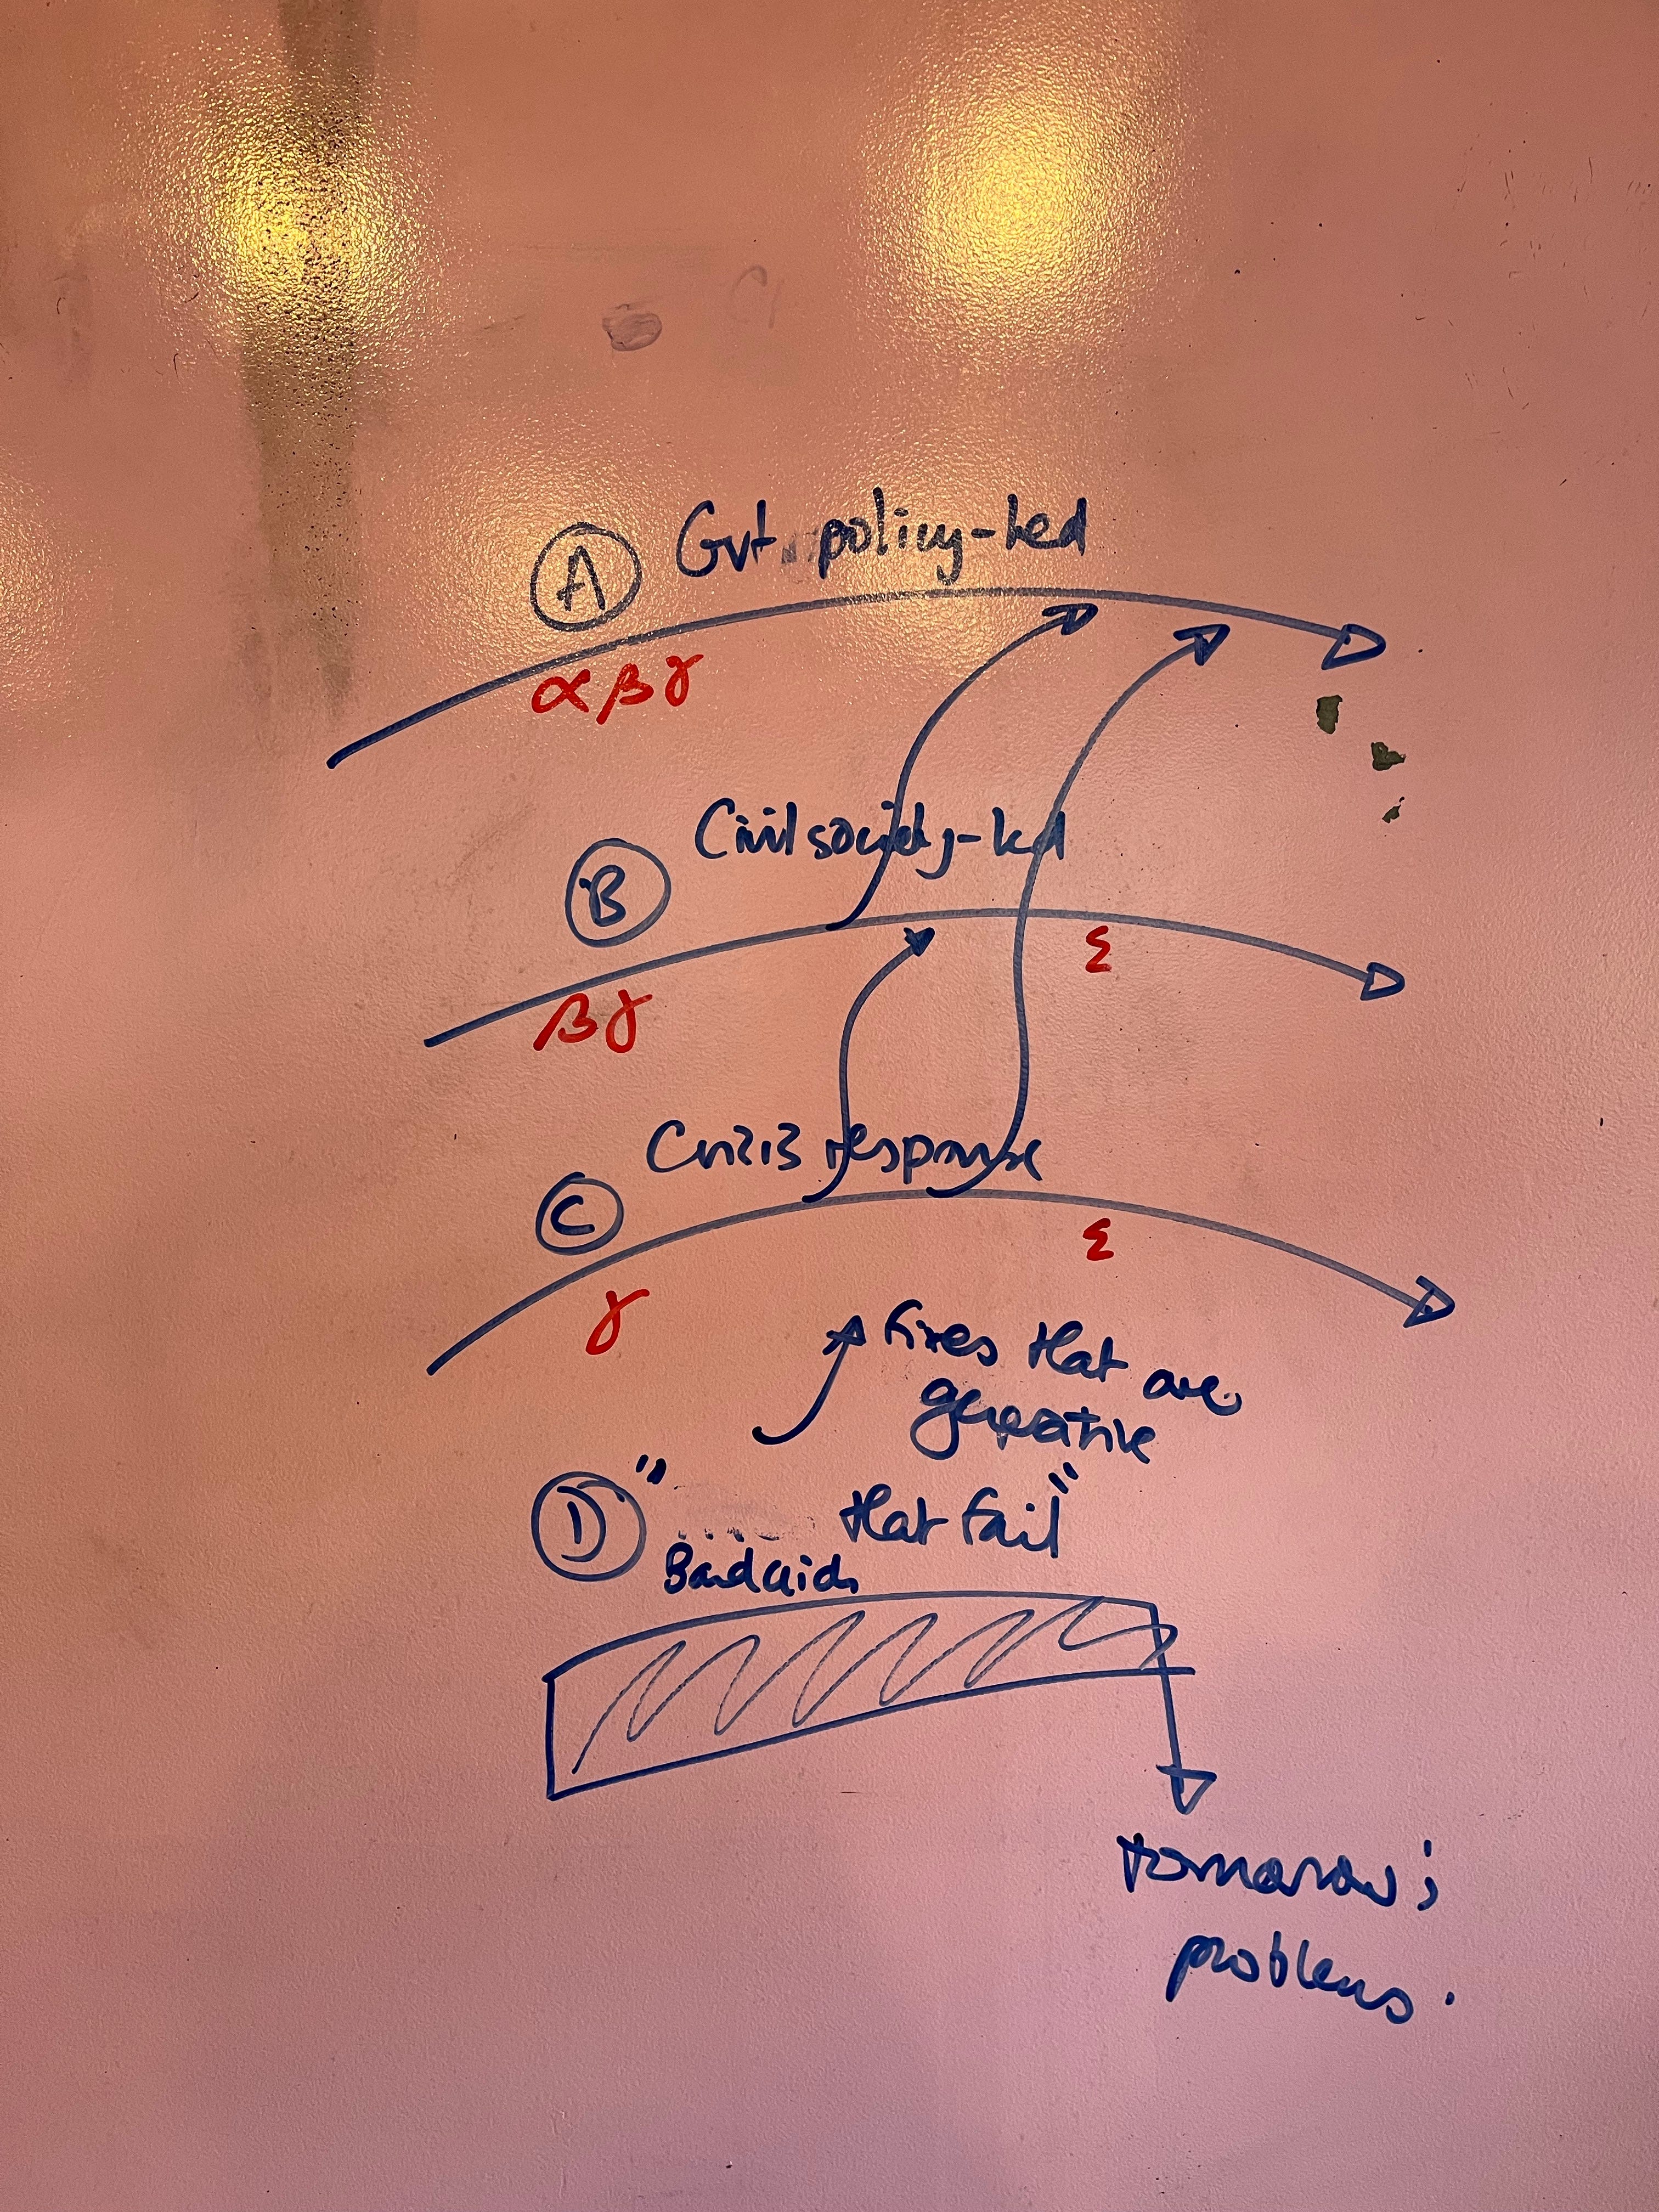 A Gvt. policy-led
αβγ
B Civil society-led
ε
βγ
C Crisis response
ε
γ
fixes that are
generative
D " that fail"
Bandaids
tomorrow's
problems.